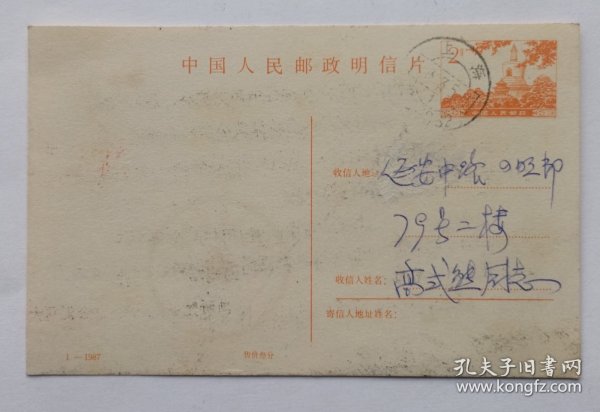 中国人民邮政明信片
2分
上海
中国人民邮政
收信人地址: 延安中路
79号二楼
收信人姓名: 高式熊同志
寄信人地址姓名:
1—1987
售价叁分
孔夫子旧书网
www.kongfz.com